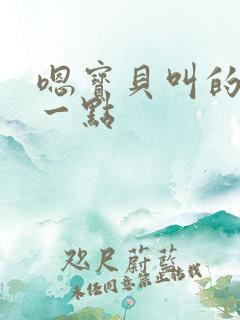 嗯寶貝叫的
一點
咫尺蔚藍
未任同意禁止轉載